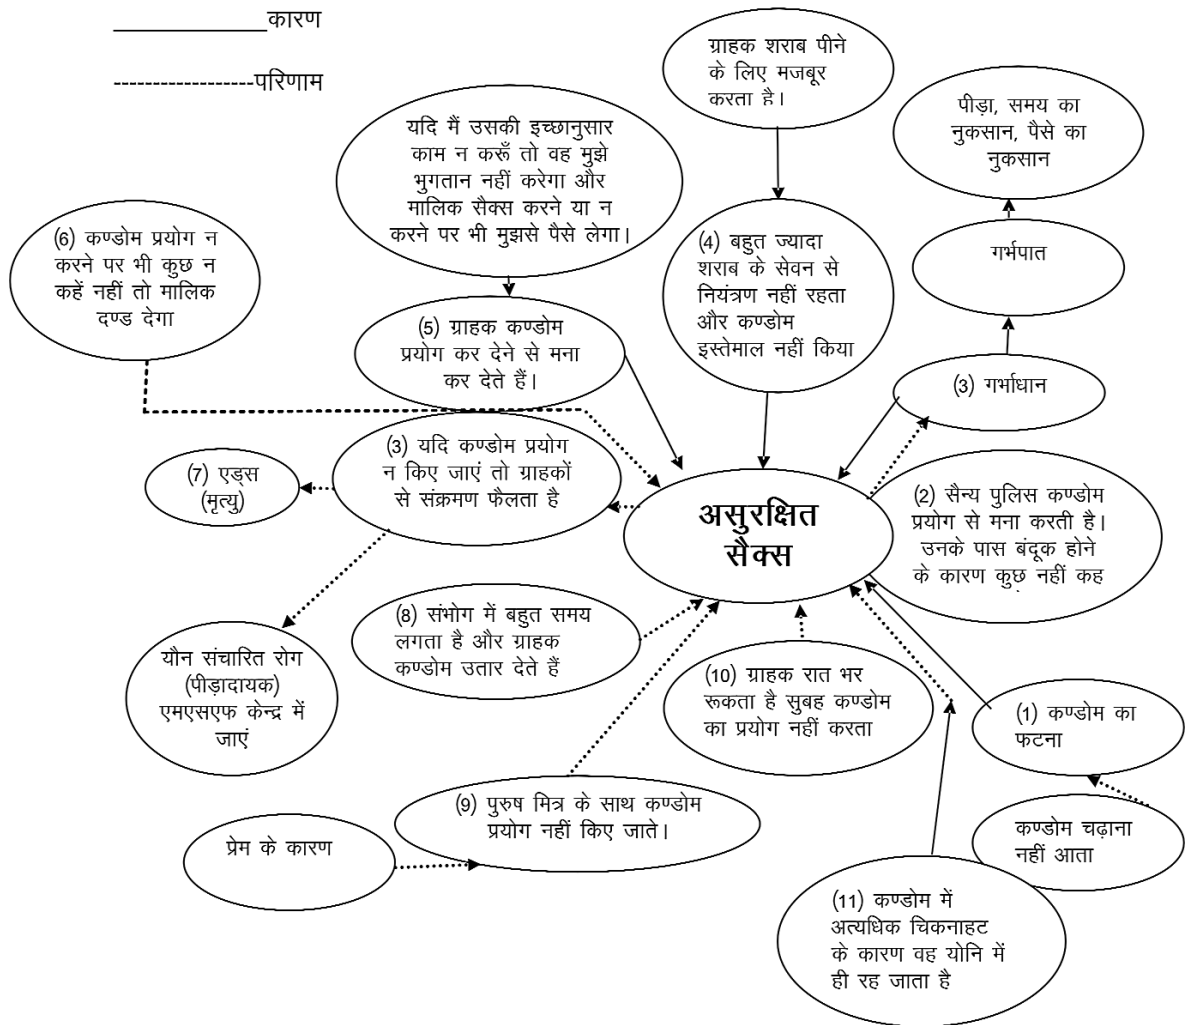 कारण
परिणाम
ग्राहक शराब पीने
के लिए मजबूर
करता है।
पीड़ा, समय का
नुकसान, पैसे का
नुकसान
यदि मैं उसकी इच्छानुसार
काम न करूँ तो वह मुझे
भुगतान नहीं करेगा और
मालिक सैक्स करने या न
करने पर भी मुझसे पैसे लेगा।
(6) कण्डोम प्रयोग न
करने पर भी कुछ न
कहें नहीं तो मालिक
दण्ड देगा
(4) बहुत ज्यादा
शराब के सेवन से
नियंत्रण नहीं रहता
और कण्डोम
इस्तेमाल नहीं किया
गर्भपात
(5) ग्राहक कण्डोम
प्रयोग कर देने से मना
कर देते हैं।
(3) गर्भाधान
(3) यदि कण्डोम प्रयोग
न किए जाएं तो ग्राहकों
से संक्रमण फैलता है
(7) एड्स
(मृत्यु)
असुरक्षित
सैक्स
(2) सैन्य पुलिस कण्डोम
प्रयोग से मना करती है।
उनके पास बंदूक होने
के कारण कुछ नहीं कह
(8) संभोग में बहुत समय
लगता है और ग्राहक
कण्डोम उतार देते हैं
यौन संचारित रोग
(पीड़ादायक)
एमएसएफ केन्द्र में
जाएं
(10) ग्राहक रात भर
रूकता है सुबह कण्डोम
का प्रयोग नहीं करता
(1) कण्डोम का
फटना
(9) पुरुष मित्र के साथ कण्डोम
प्रयोग नहीं किए जाते।
प्रेम के कारण
कण्डोम चढ़ाना
नहीं आता
(11) कण्डोम में
अत्यधिक चिकनाहट
के कारण वह योनि में
ही रह जाता है